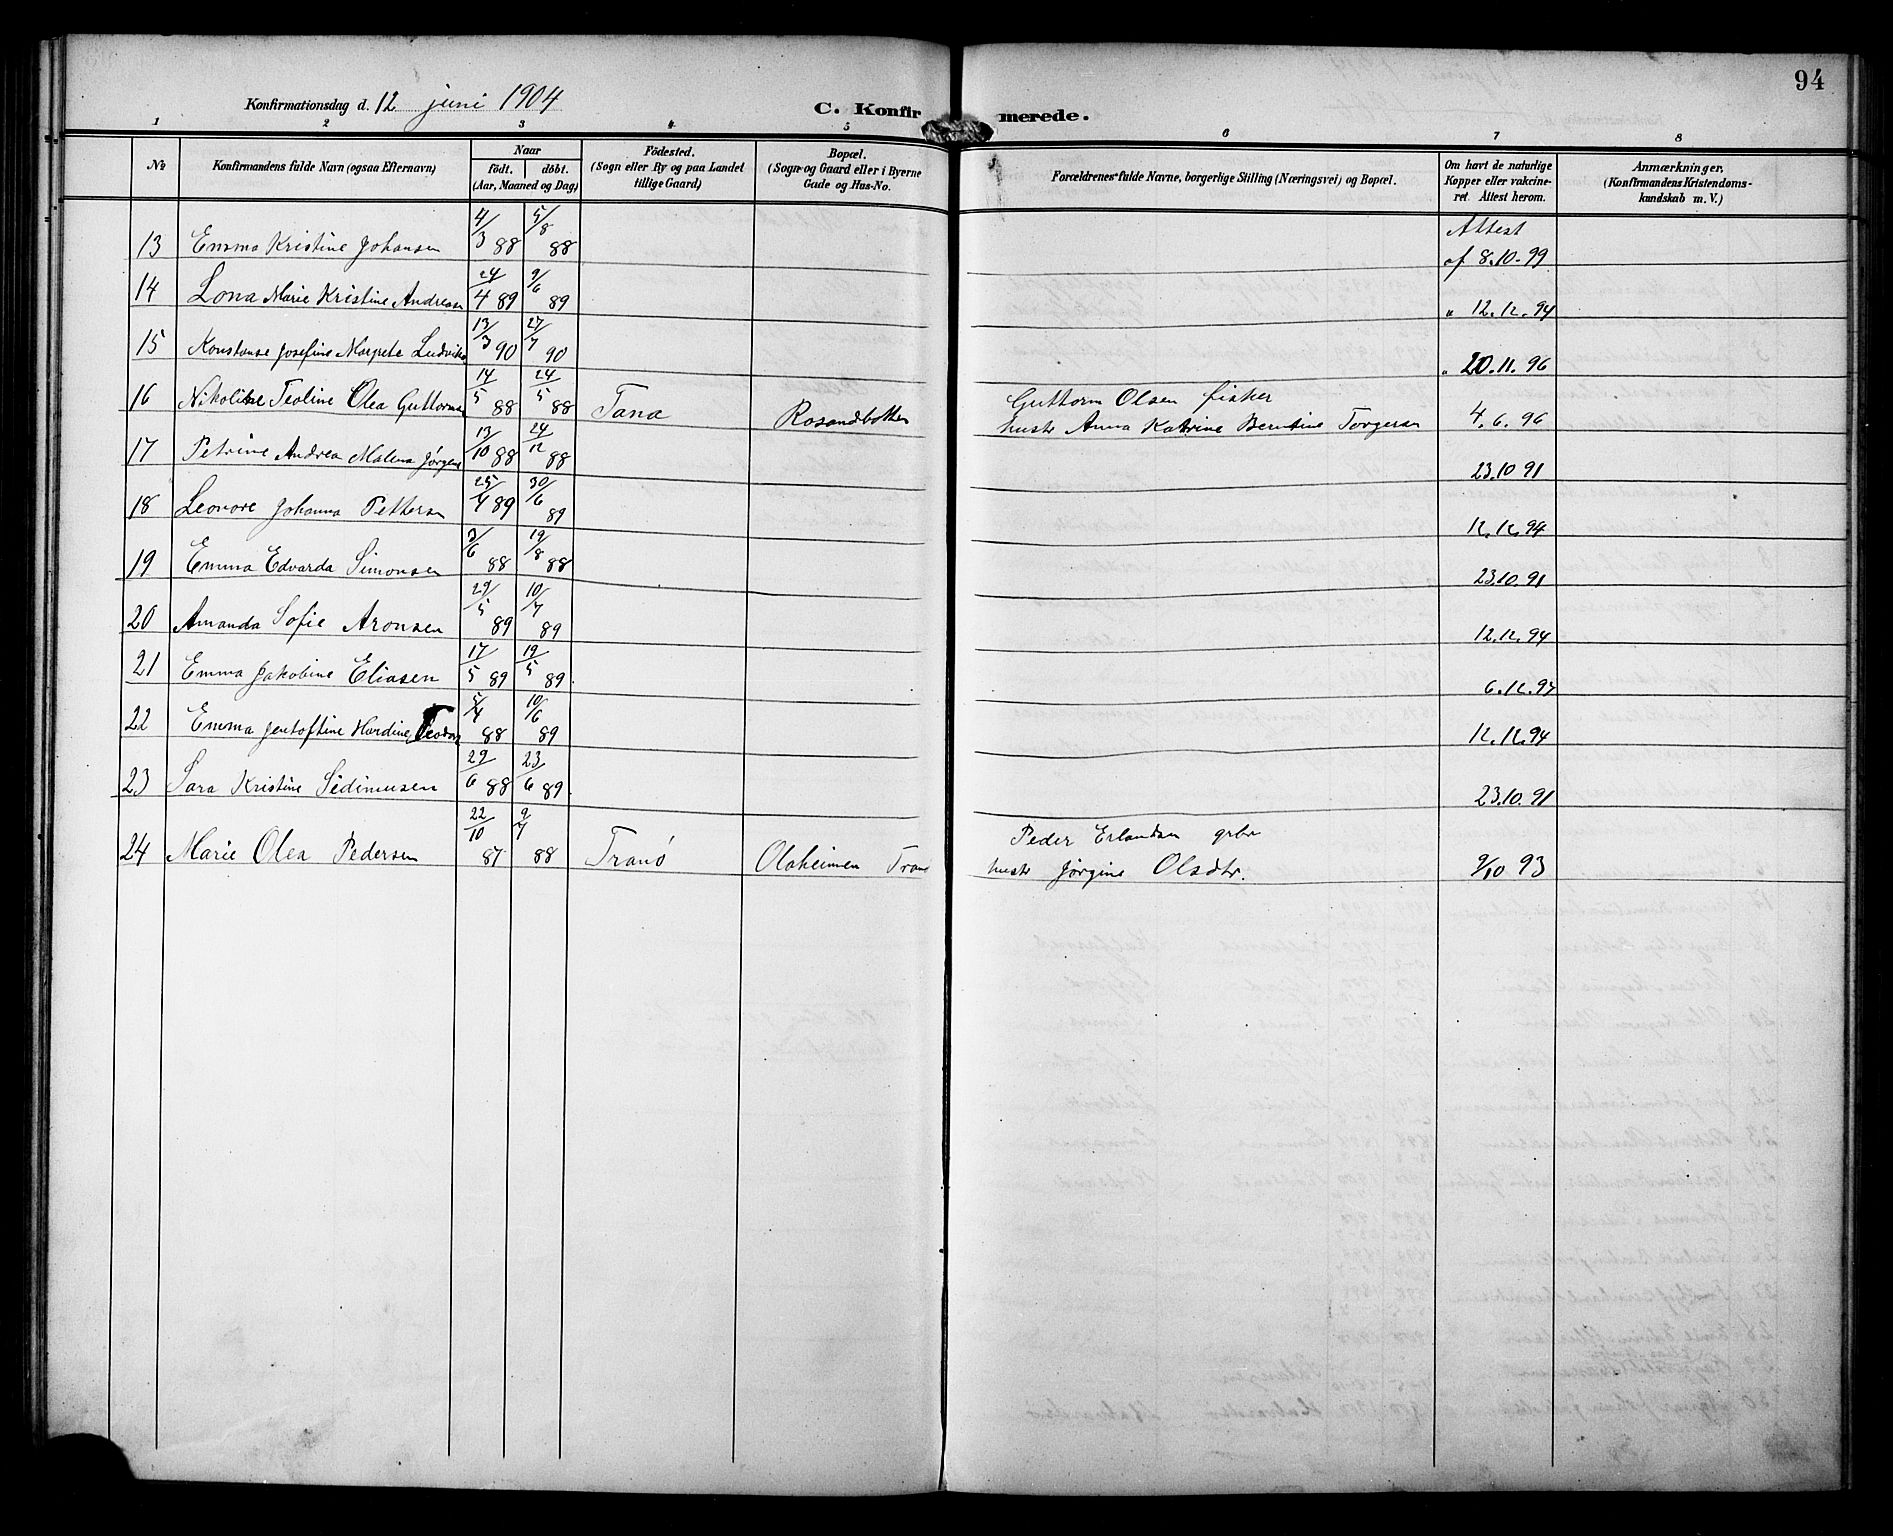 94
Konfirmationsdag d. 12 juni 1904
C. Konfirmerede.
1 2 3 4 5 6 7 8
No
Konfirmandens fulde Navn (ogsaa Efternavn)
Naar
födt. döbt.
(Aar, Maaned og Dag)
Födested.
(Sogn eller By og paa Landet
tillige Gaard)
Bopæl.
(Sogn og Gaard eller i Byerne
Gade og Hus-No.
Forældrenes fulde Navne, borgerlige Stilling (Næringsvei) og Bopæl.
Om havt de naturlige
Kopper eller vakcine-
ret. Attest herom.
Anmærkninger,
(Konfirmandens Kristendoms-
kundskab m. V.)
13 Emma Kristine Johansen 4/3 88 5/8 88 Attest af 8.10.99
14 Lona Marie Kristine Andreasn 24/4 89 9/6 89 " 12.12.94
15 Konstanse Josefine Margrete Ludviks 13/3 90 27/7 90 " 20.11.96
16 Nikoline Teoline Olea Guttorms 14/5 88 24/5 88 Tana Rosandbotten Guttorm Olsen fisker
hustr Anna Katrine Berntine Torgersn 4.6.96
17 Petrine Andrea Malena Jørgens 13/10 88 24/12 88 23.10 91
18 Leonore Johanna Pettersn 25/4 89 30/6 89 12.12.94
19 Emma Edvarda Simonsen 3/6 88 19/8 88 23.10.91
20 Amanda Sofie Aronsen 29/5 89 10/7 89 12.12.94
21 Emma Jakobine Eliasen 17/5 89 19/5 89 6.12.94
22 Emma Jentoftine Hardine Teodor 5/4 88 10/6 89 12.12.94
23 Sara Kristine Sedimusen 29/6 88 23/6 89 23.10.91
24 Marie Olea Pedersen 22/10 87 9/7 88 Tranö Olaheimen Tranö Peder Erlandsn grbr
hustr Jørgine Olsdtr. 9/10 93